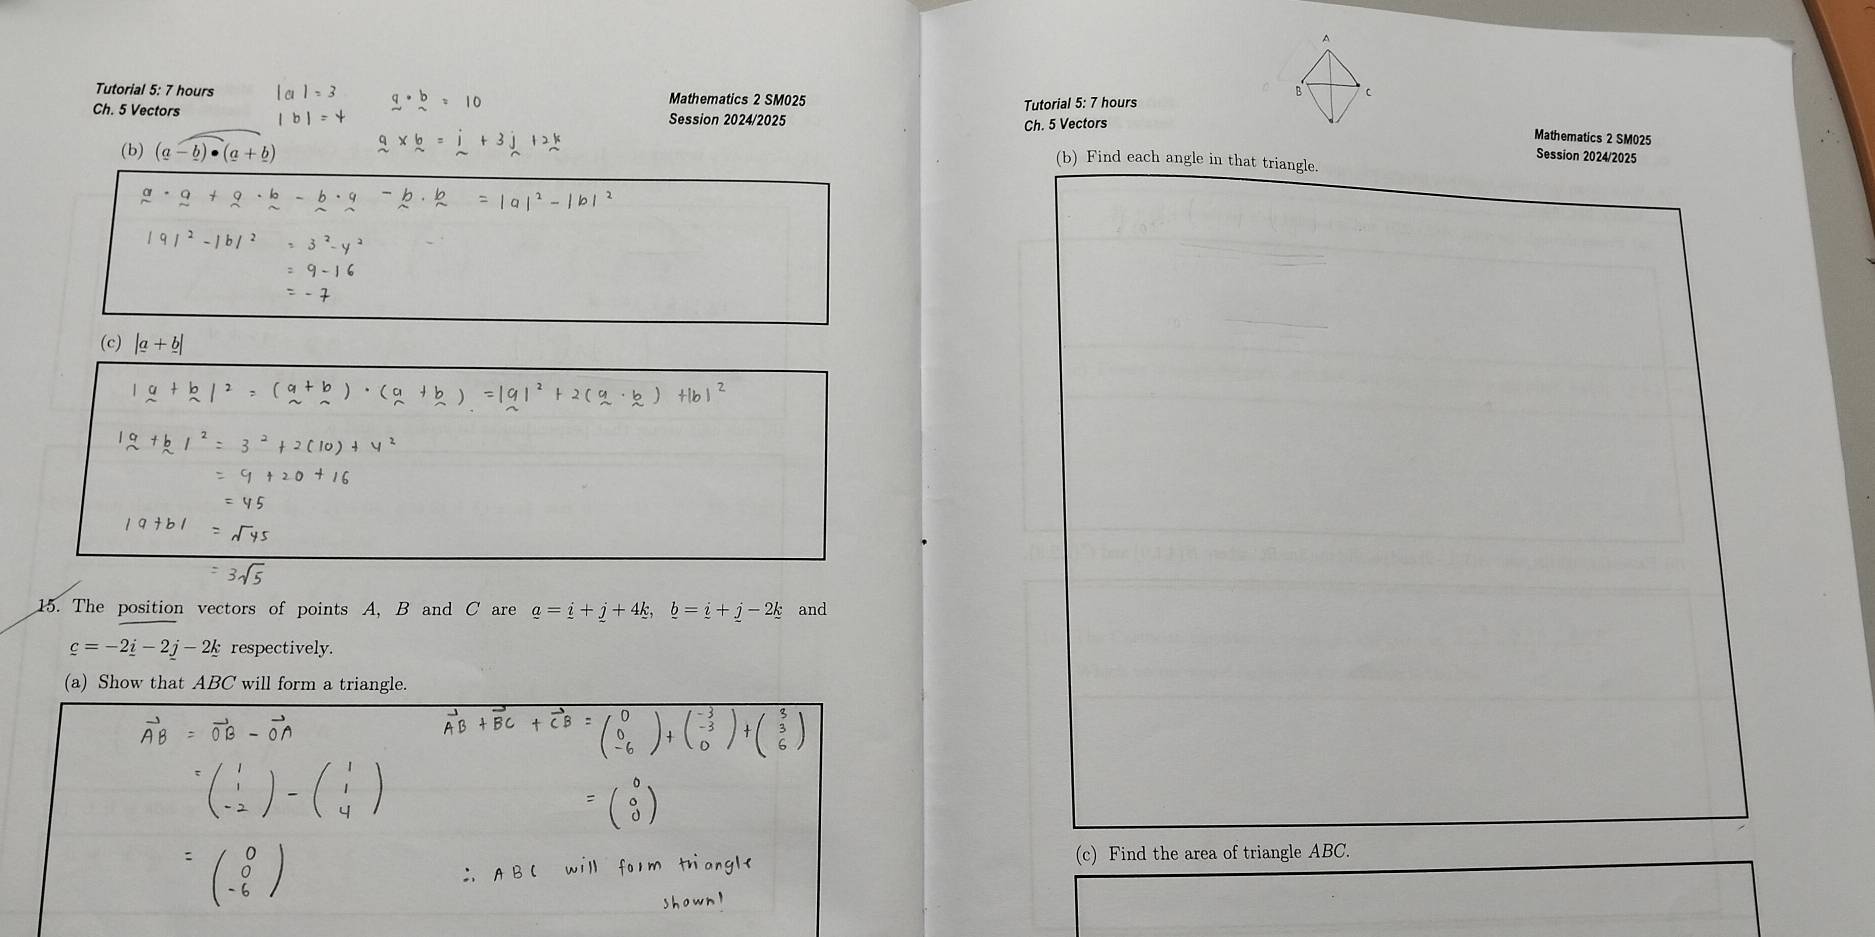 Tutorial 5: 7 hours
Ch. 5 Vectors
|a| = 3
|b| = 4
a · b = 10
a × b = i + 3j + 2k
Mathematics 2 SM025
Session 2024/2025
(b) (a − b)•(a + b)
a · a + a · b − b · a − b · b = |a|² − |b|²
|a|² − |b|² = 3² − 4²
= 9 − 16
= − 7
(c) |a + b|
|a + b|² = (a + b) · (a + b) = |a|² + 2(a · b) + |b|²
|a + b|² = 3² + 2(10) + 4²
= 9 + 20 + 16
= 45
|a + b| = √45
= 3√5
15. The position vectors of points A, B and C are a = i + j + 4k, b = i + j − 2k and
c = −2i − 2j − 2k respectively.
(a) Show that ABC will form a triangle.
AB = OB − OA
= (1 1 -2) − (1 1 4)
= (0 0 -6)
AB + BC + CB = (0 0 -6) + (-3 -3 0) + (3 3 6)
= (0 0 0)
∴ ABC will form triangle
shown!
A
B
C
Tutorial 5: 7 hours
Ch. 5 Vectors
Mathematics 2 SM025
Session 2024/2025
(b) Find each angle in that triangle.
(c) Find the area of triangle ABC.